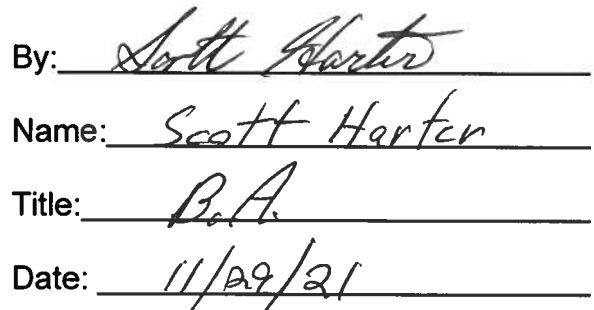 By: Scott Harter
Name: Scott Harter
Title: B.A.
Date: 11/29/21